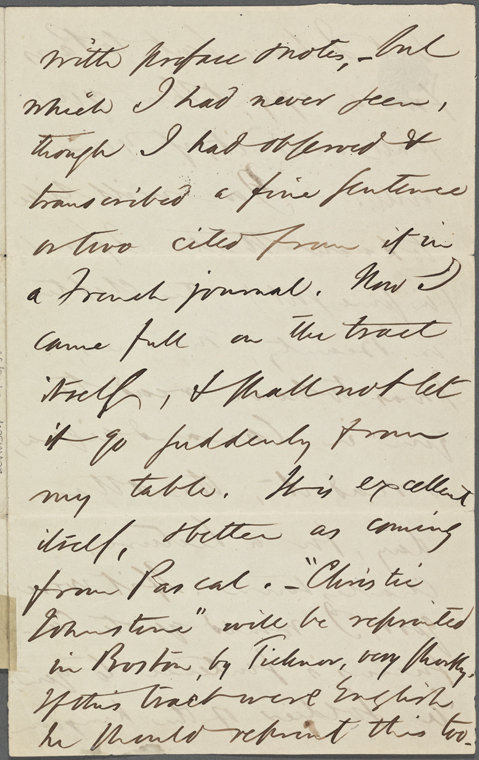 with preface & notes, – but
which I had never seen,
though I had observed &
transcribed a fine sentence
or two cited from it in
a French journal. Now I
came full on the tract
itself, & shall not let
it go suddenly from
my table. It is excellent
itself, & better as coming
from Pascal. – "Christie
Johnstone" will be reprinted
in Boston, by Ticknor, very shortly.
If this tract were English
he should reprint this too.